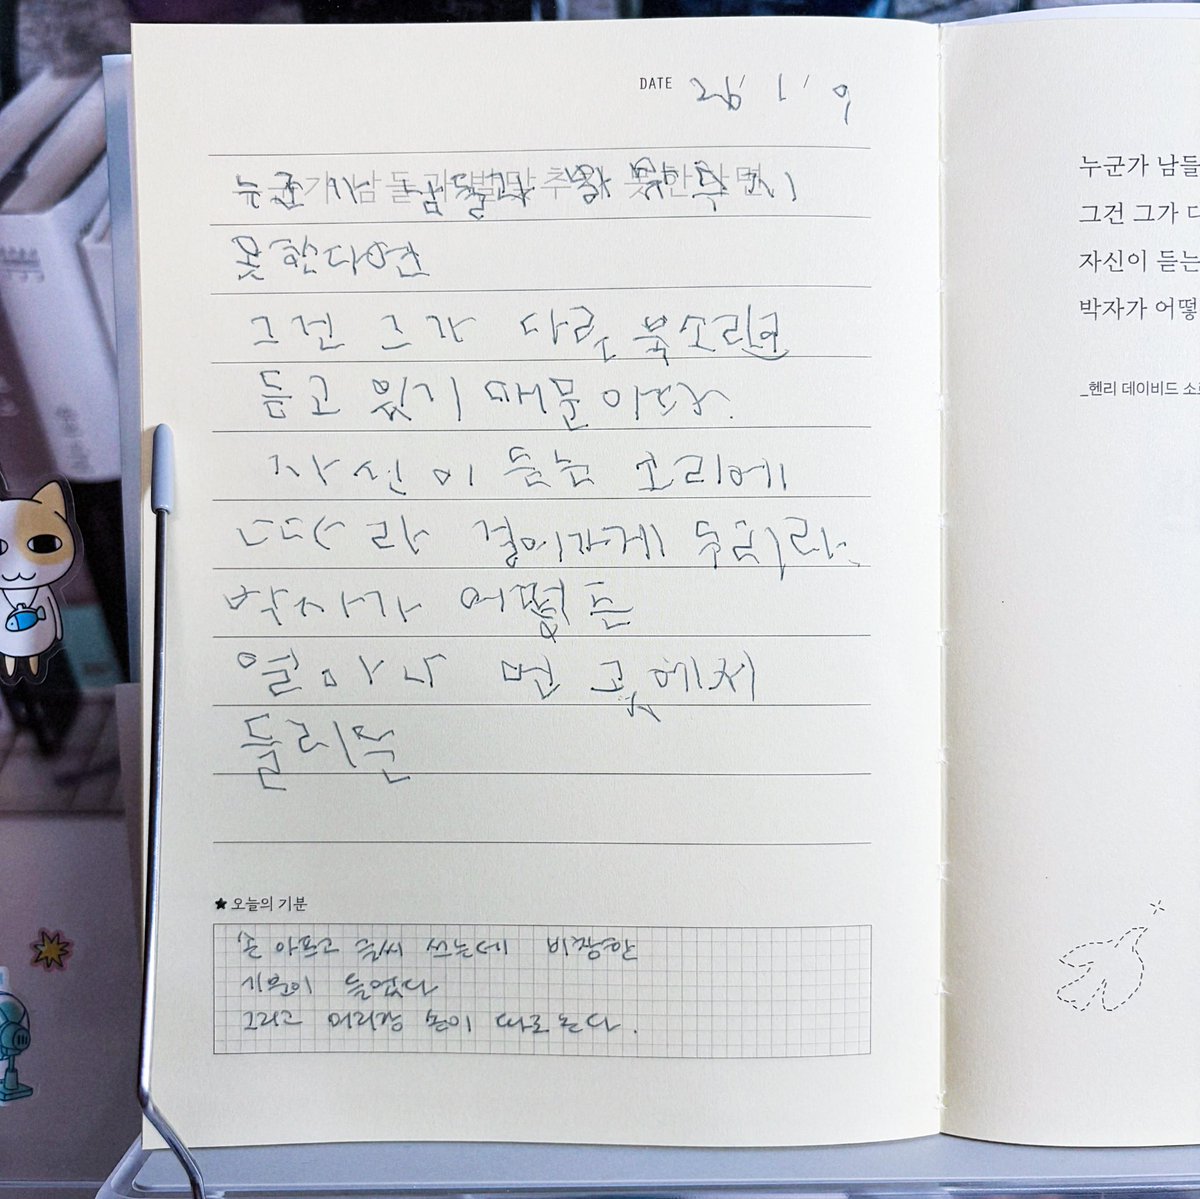 DATE 26/ 1/ 9
누군가 남들과 발맞추지
못한다면
그건 그가 다른 북소리를
듣고 있기 때문이다.
자신이 듣는 소리에
따라 걸어가게 두라.
박자가 어떻든
얼마나 먼 곳에서
들리든
★ 오늘의 기분
손 아프고 글씨 쓰는데 비장한
기분이 들었다
그리고 머리랑 손이 따로 논다.
누군가 남들
그건 그가 다
자신이 듣는
박자가 어떻
_헨리 데이비드 소로